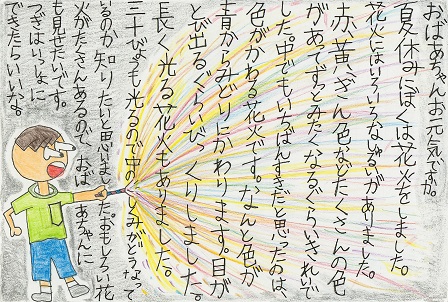 おばあちゃんお元気ですか。
夏休みにぼくは花火をしました。
花火にはいろいろなしゅるいがありました。
赤、黄、ぎん色などたくさんの色
があってずっとみたくなるぐらいきれいで
した。中でもいちばんすきだと思ったのは、
色がかわる花火です。なんと色が
青からみどりにかわります。目が
とび出るぐらいびっくりしました。
長く光る花火もありました。
三十びょうも光るので中のしくみがどうなって
いるのか知りたいと思いました。おもしろい花
火がたくさんあるので、おばあちゃんに
も見せたいです。
つぎはいっしょに
できたらいいな。